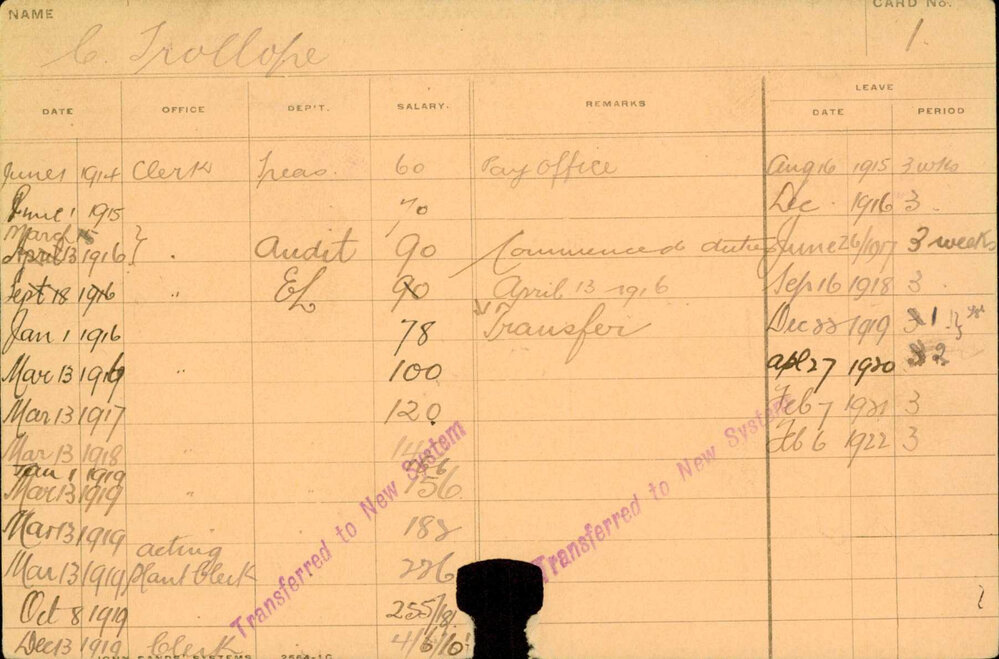 NAME
CARD No.
C. Trollope
1.
DATE OFFICE DEP'T. SALARY. REMARKS LEAVE
DATE PERIOD
June 1 1914 Clerk Leas. 60 Pay Office Aug 16 1915 3 wks
June 1 1915 70 Dec. 1916 3
March
April 3 1916 } " Audit 90 Commenced duties June 26/1917 3 weeks
Sept 18 1916 " EL 90 April 13 1916 Sep 16 1918 3
Jan 1 1916 78 Transfer Dec 22 1919 1
Mar 13 1916 " 100 Apl 27 1920 2
Mar 13 1917 120 Feb 7 1921 3
Mar 13 1918 Feb 6 1922 3
Jan 1 1919
Mar 13 1919 " 156
Mar 13 1919 182
Mar 13 1919 acting plant Clerk 226
Oct 8 1919 255/18/
Dec 13 1919 Clerk 4/6/10
Transferred to New System
Transferred to New System